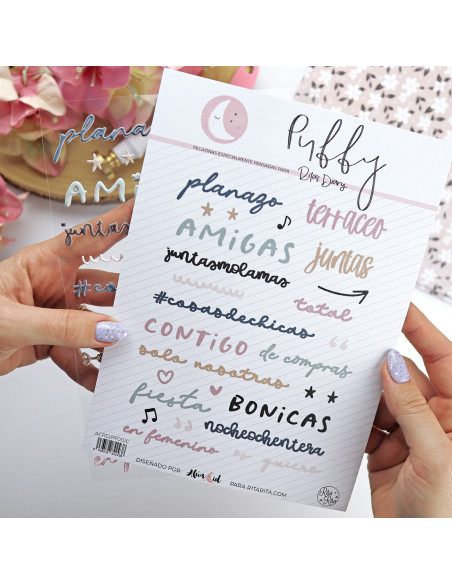 PELATINAS ESPECIALMENTE PENSADAS PARA
Puffy
Rita's Diary
planazo
terraceo
AMIGAS
juntas
juntasmolamas
total
#cosasdechicas
CONTIGO de compras
solo nosotras
fiesta BONICAS
nocheochentera
en femenino os quiero
DISEÑADO POR:
PARA RITARITA.COM
Rita Rita
planazo
AMI
juntas
#co
en